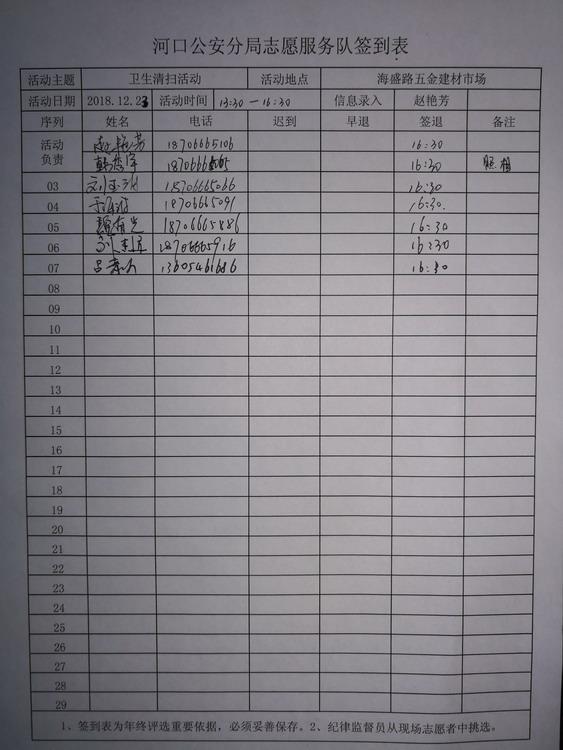 河口公安分局志愿服务队签到表
活动主题 卫生清扫活动 活动地点 海盛路五金建材市场
活动日期 2018.12.23 活动时间 13:30-16:30 信息录入 赵艳芳
序列 姓名 电话 迟到 早退 签退 备注
活动 赵艳芳 18706665106 16:30
负责 16:30 照相
03 18706665066 16:30
04 18706665091 16:30.
05 颜有光 18706665886 16:30
06 18706665916 16:30
07 13605461686 16:30
08
09
10
11
12
13
14
15
16
17
18
19
20
21
22
23
24
25
26
27
28
29
1、签到表为年终评选重要依据，必须妥善保存。2、纪律监督员从现场志愿者中挑选。